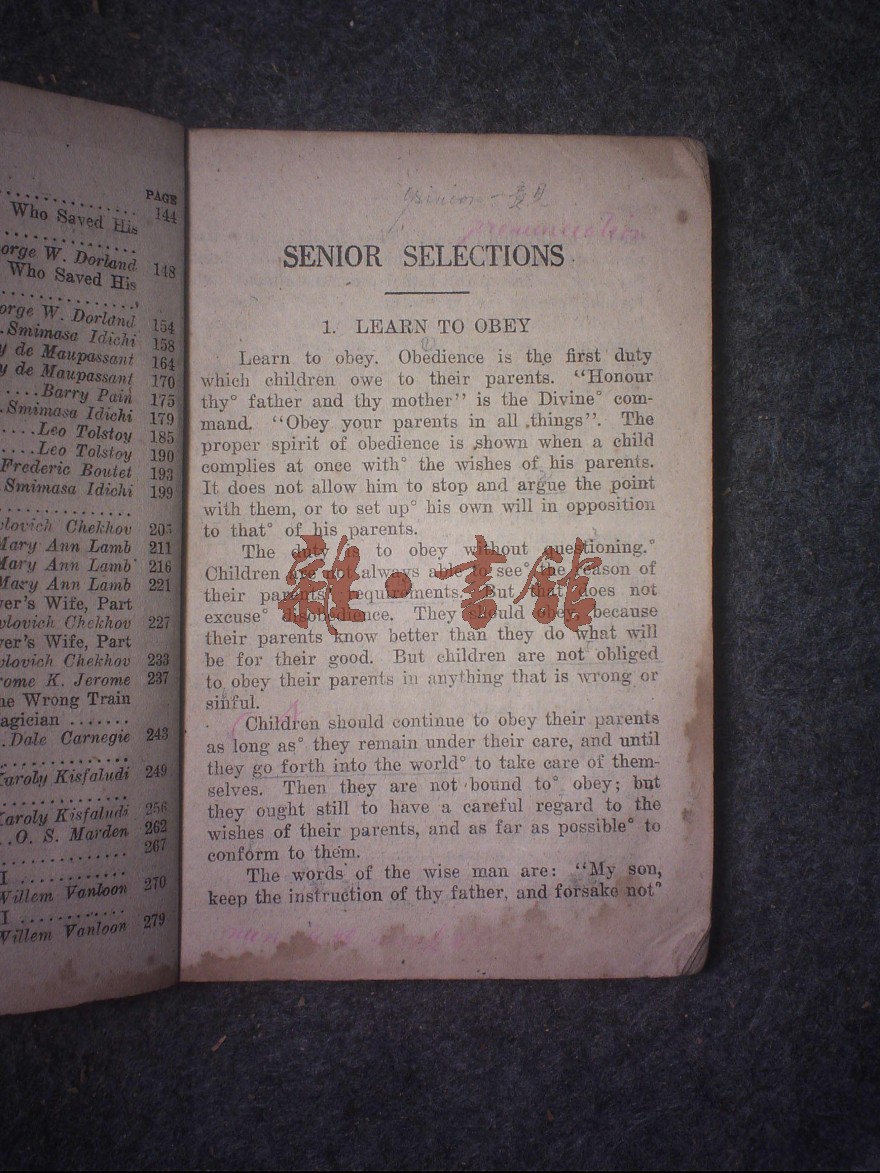 PAGE
Who Saved His 144
orge W. Dorland 148
Who Saved His
orge W. Dorland 154
.Smimasa Idichi 158
y de Maupassant 164
y de Maupassant 170
....Barry Pain 175
.Smimasa Idichi 179
....Leo Tolstoy 185
....Leo Tolstoy 190
Frederic Boutet 193
Smimasa Idichi 199
vlovich Chekhov 205
Mary Ann Lamb 211
Mary Ann Lamb 216
Mary Ann Lamb 221
ver's Wife, Part
vlovich Chekhov 227
ver's Wife, Part
vlovich Chekhov 233
rome K. Jerome 237
he Wrong Train
agician .......
.Dale Carnegie 243
Karoly Kisfaludi 249
Karoly Kisfaludi 256
..O. S. Marden 262
267
I ............
Willem Vanloon 270
I ............
Willem Vanloon 279
opinion - 意見
pronunciation
SENIOR SELECTIONS
1. LEARN TO OBEY
Learn to obey. Obedience is the first duty
which children owe to their parents. “Honour
thy° father and thy mother” is the Divine° com-
mand. “Obey your parents in all things”. The
proper spirit of obedience is shown when a child
complies at once with° the wishes of his parents.
It does not allow him to stop and argue the point
with them, or to set up° his own will in opposition
to that° of his parents.
The duty is to obey without questioning.°
Children are not always able to see° the reason of
their parents' requirements. But that does not
excuse° disobedience. They should obey, because
their parents know better than they do what will
be for their good. But children are not obliged
to obey their parents in anything that is wrong or
sinful.
Children should continue to obey their parents
as long as° they remain under their care, and until
they go forth into the world° to take care of them-
selves. Then they are not bound to° obey; but
they ought still to have a careful regard to the
wishes of their parents, and as far as possible° to
conform to them.
The words of the wise man are: “My son,
keep the instruction of thy father, and forsake not°
雜·書館